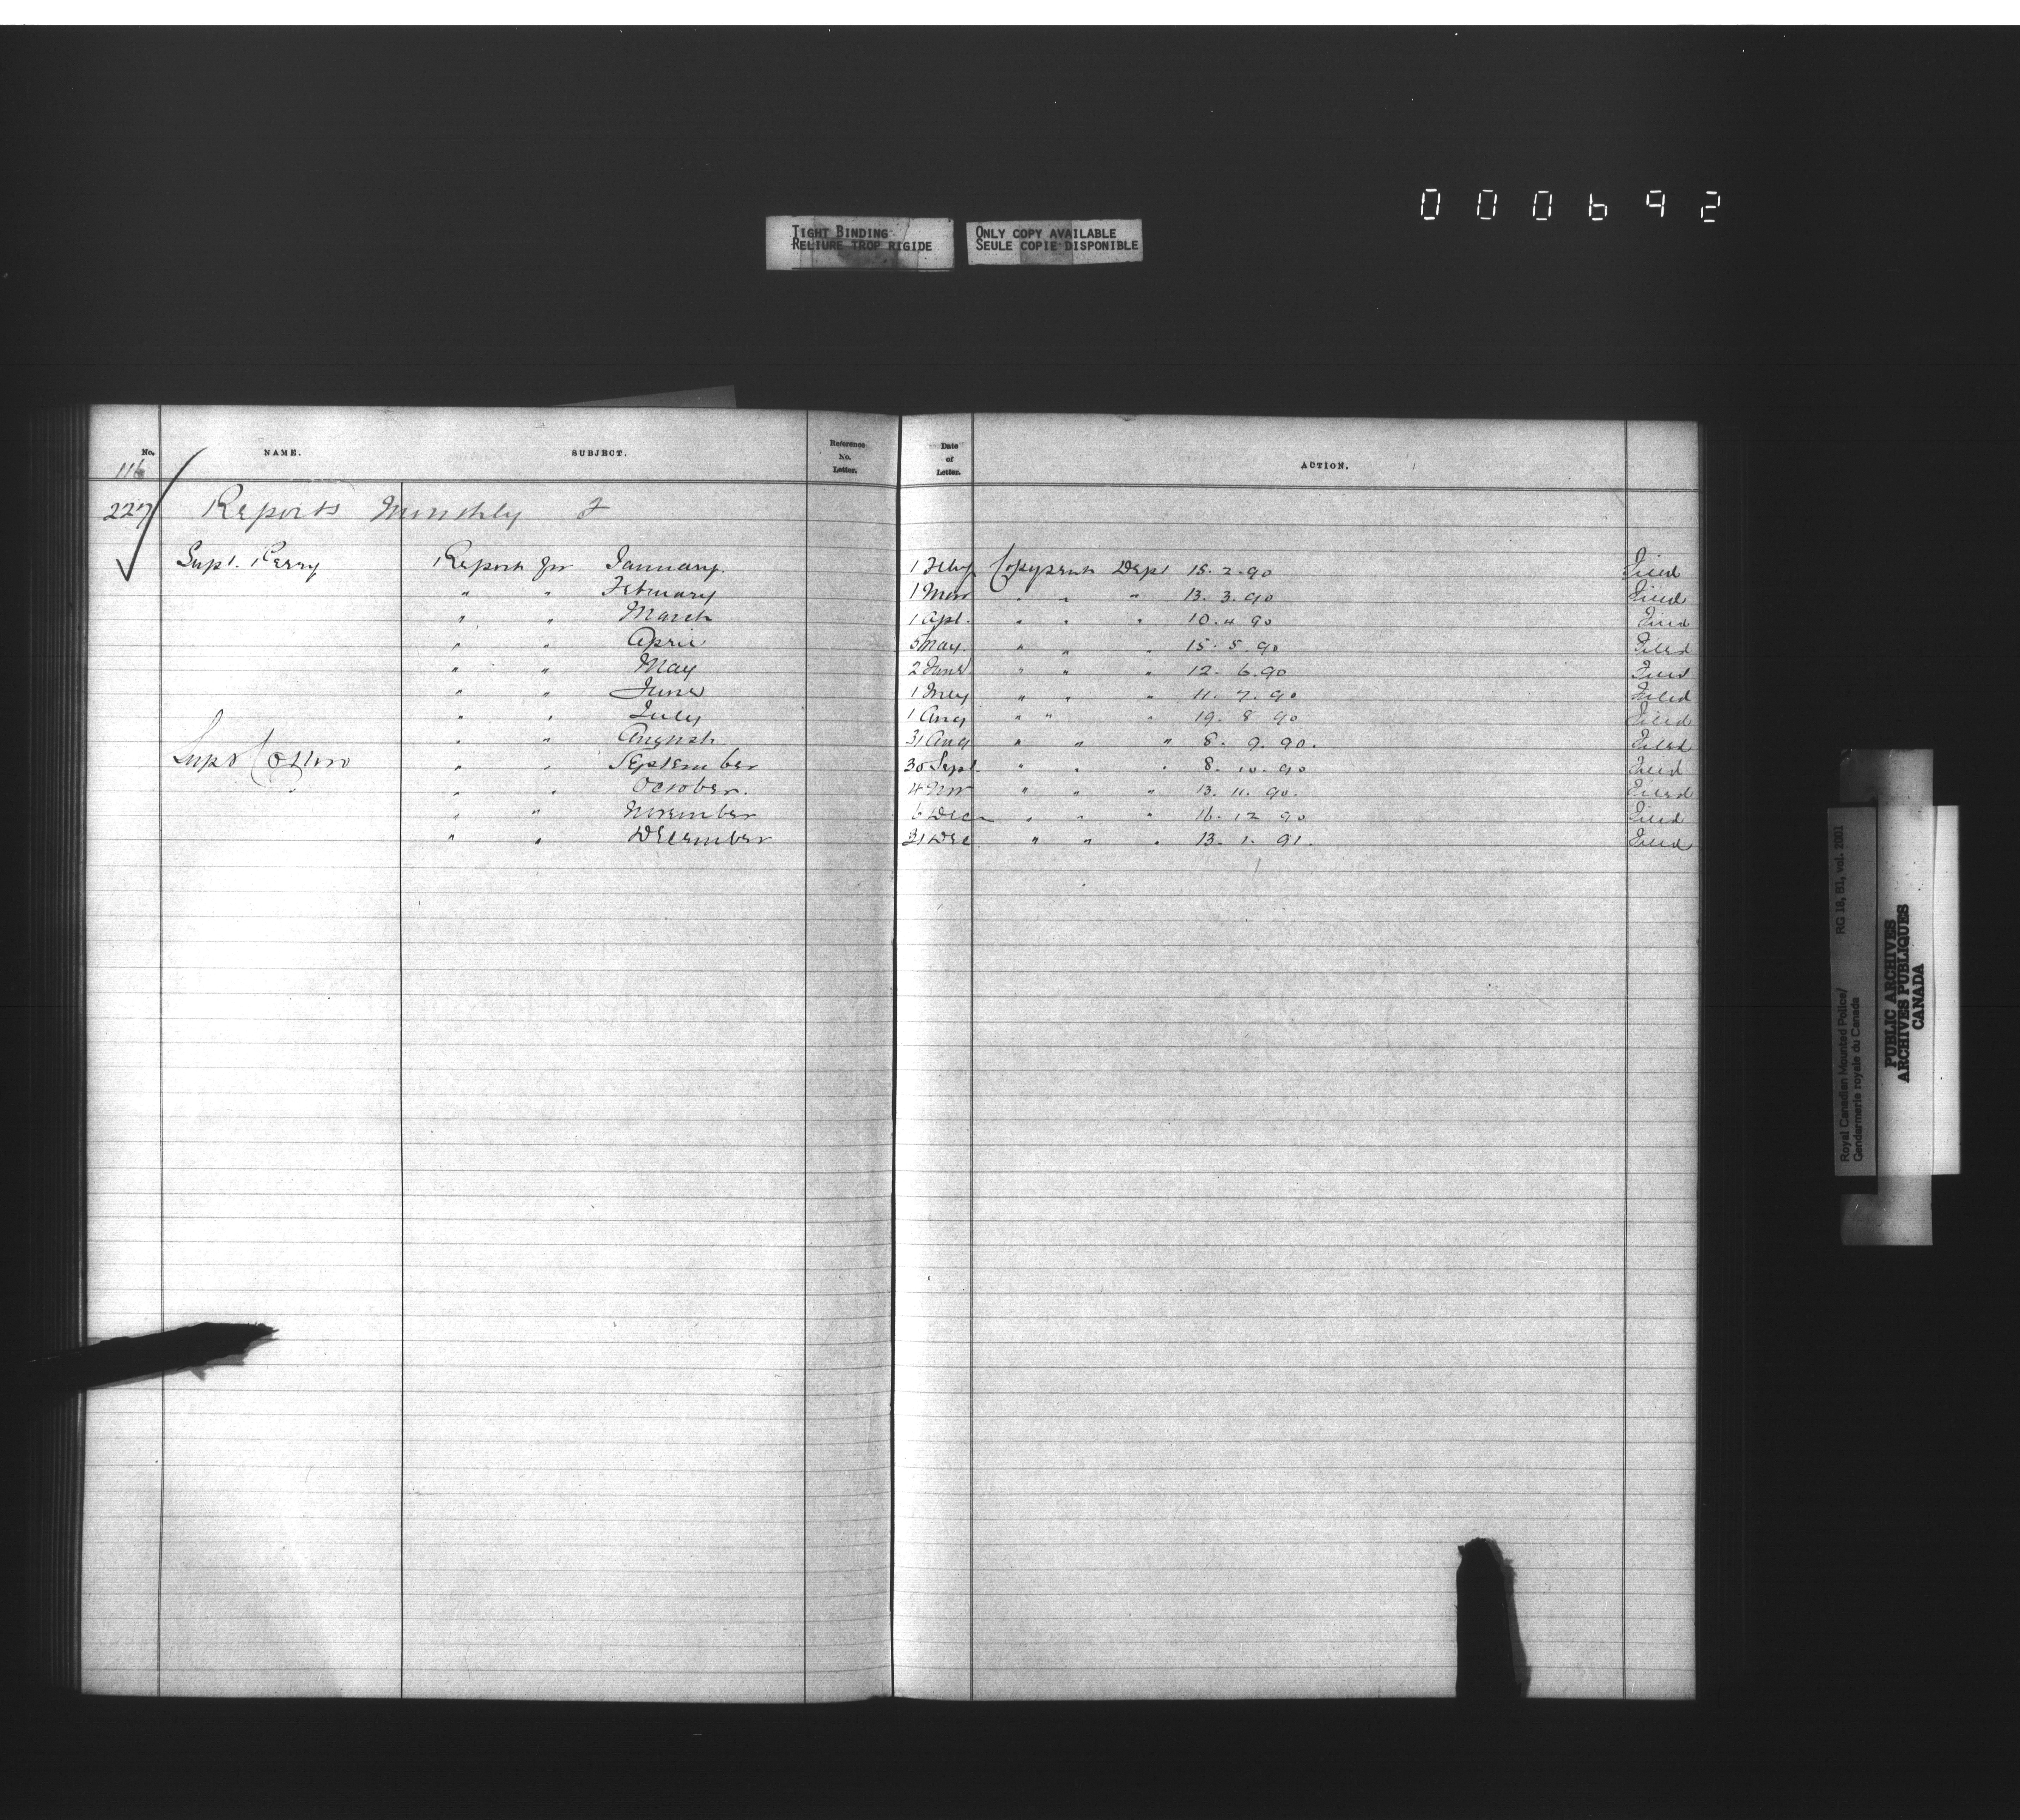 000692
TIGHT BINDING
RELIURE TROP RIGIDE
ONLY COPY AVAILABLE
SEULE COPIE DISPONIBLE
No. NAME. SUBJECT. Reference No. Letter. Date of Letter. ACTION.
116
227 Reports Monthly F
Supt. Perry Report for January. 1 Feby Copy sent Dept 15.2.90 Filed
" " February 1 Mar " " " 13.3.90 Filed
" " March 1 Apl. " " " 10.4.90 Filed
" " April 5 May. " " " 15.5.90 Filed
" " May 2 June " " " 12.6.90 Filed
" " June 1 July " " " 11.7.90 Filed
" " July 1 Aug " " " 19.8.90 Filed
" " August 31 Aug " " " 8.9.90. Filed
Supt Cotton " " September 30 Sept. " " " 8.10.90 Filed
" " " October. 4 Nov " " " 13.11.90. Filed
" " November 6 Dec " " " 16.12.90 Filed
" " December 31 Dec " " " 13.1.91. Filed
Royal Canadian Mounted Police/ RG 18, B1, vol. 2001
Gendarmerie royale du Canada
PUBLIC ARCHIVES
ARCHIVES PUBLIQUES
CANADA